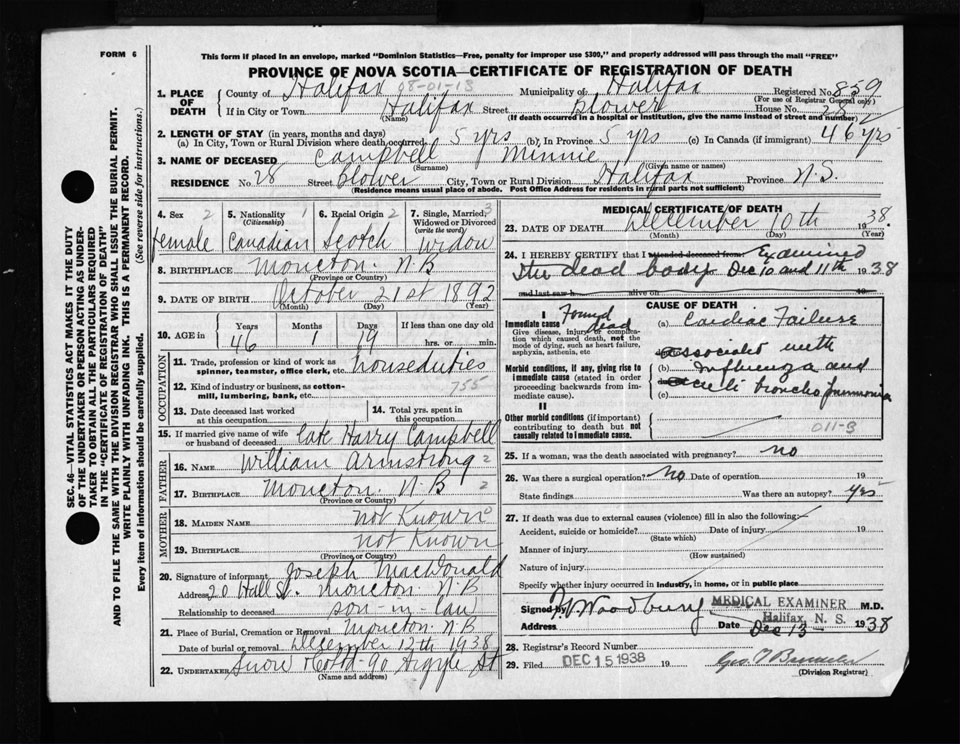 FORM 6
This form if placed in an envelope, marked "Dominion Statistics—Free, penalty for improper use $300," and properly addressed will pass through the mail "FREE"
PROVINCE OF NOVA SCOTIA—CERTIFICATE OF REGISTRATION OF DEATH
1. PLACE OF DEATH County of Halifax 08-01-13 Municipality of Halifax Registered No. 859
(For use of Registrar General only)
If in City or Town Halifax Street House No. 28
(Name) (If death occurred in a hospital or institution, give the name instead of street and number)
2. LENGTH OF STAY (in years, months and days)
(a) In City, Town or Rural Division where death occurred 5 yrs (b) In Province 5 yrs (c) In Canada (if immigrant) 46 yrs
3. NAME OF DECEASED Campbell Minnie
(Surname) (Given name or names)
RESIDENCE No. 28 Street City, Town or Rural Division Halifax Province N.S.
(Residence means usual place of abode. Post Office Address for residents in rural parts not sufficient)
SEC. 46—VITAL STATISTICS ACT MAKES IT THE DUTY
OF THE UNDERTAKER OR PERSON ACTING AS UNDER-
TAKER TO OBTAIN ALL THE PARTICULARS REQUIRED
IN THE "CERTIFICATE OF REGISTRATION OF DEATH"
AND TO FILE THE SAME WITH THE DIVISION REGISTRAR WHO SHALL ISSUE THE BURIAL PERMIT.
WRITE PLAINLY WITH UNFADING INK. THIS IS A PERMANENT RECORD.
Every item of information should be carefully supplied. (See reverse side for instructions.)
4. Sex 2 5. Nationality 1 6. Racial Origin 2 7. Single, Married, 3
(Citizenship) Widowed or Divorced
(write the word)
Female Canadian Scotch Widow
8. BIRTHPLACE Moncton N.B
(Province or Country)
9. DATE OF BIRTH October 21st 1892
(Month) (Day) (Year)
10. AGE in Years Months Days If less than one day old
46 1 19 hrs. or min.
OCCUPATION
11. Trade, profession or kind of work as
spinner, teamster, office clerk, etc. houseduties
12. Kind of industry or business, as cotton-
mill, lumbering, bank, etc. 755
13. Date deceased last worked
at this occupation
14. Total yrs. spent in
this occupation
15. If married give name of wife
or husband of deceased Late Harry Campbell
FATHER
16. NAME William Armstrong 2
17. BIRTHPLACE Moncton. N.B 2
(Province or Country)
MOTHER
18. MAIDEN NAME not Known
19. BIRTHPLACE not Known
(Province or Country)
20. Signature of informant Joseph MacDonald
Address 20 Hall St. Moncton N.B
Relationship to deceased son-in-law
21. Place of Burial, Cremation or Removal Moncton N.B
Date of burial or removal December 12th 1938
22. UNDERTAKER Snow & Co Ltd - 90 Argyle St
(Name and address)
MEDICAL CERTIFICATE OF DEATH
23. DATE OF DEATH December 10th 1938.
(Month) (Day) (Year)
24. I HEREBY CERTIFY that I attended deceased from Examined
the dead body Dec 10 and 11th 1938
and last saw h alive on 19
CAUSE OF DEATH
I Found dead
Immediate cause (a) Cardiac Failure
Give disease, injury or complica-
tion which caused death, not the
mode of dying, such as heart failure,
asphyxia, asthenia, etc
associated with
Morbid conditions, if any, giving rise to
immediate cause (stated in order
proceeding backwards from im-
mediate cause).
(b) Influenza and
(c) acute broncho pneumonia
II
Other morbid conditions (if important)
contributing to death but not
causally related to immediate cause. 011-B
25. If a woman, was the death associated with pregnancy? no
26. Was there a surgical operation? No Date of operation 19
State findings Was there an autopsy? yes
27. If death was due to external causes (violence) fill in also the following:—
Accident, suicide or homicide? Date of injury 19
(State which)
Manner of injury
(How sustained)
Nature of injury
Specify whether injury occurred in industry, in home, or in public place
Signed by Woodbury MEDICAL EXAMINER M.D.
Halifax, N. S.
Address Date Dec 13 - 1938
28. Registrar's Record Number
29. Filed DEC 15 1938 19
(Division Registrar)